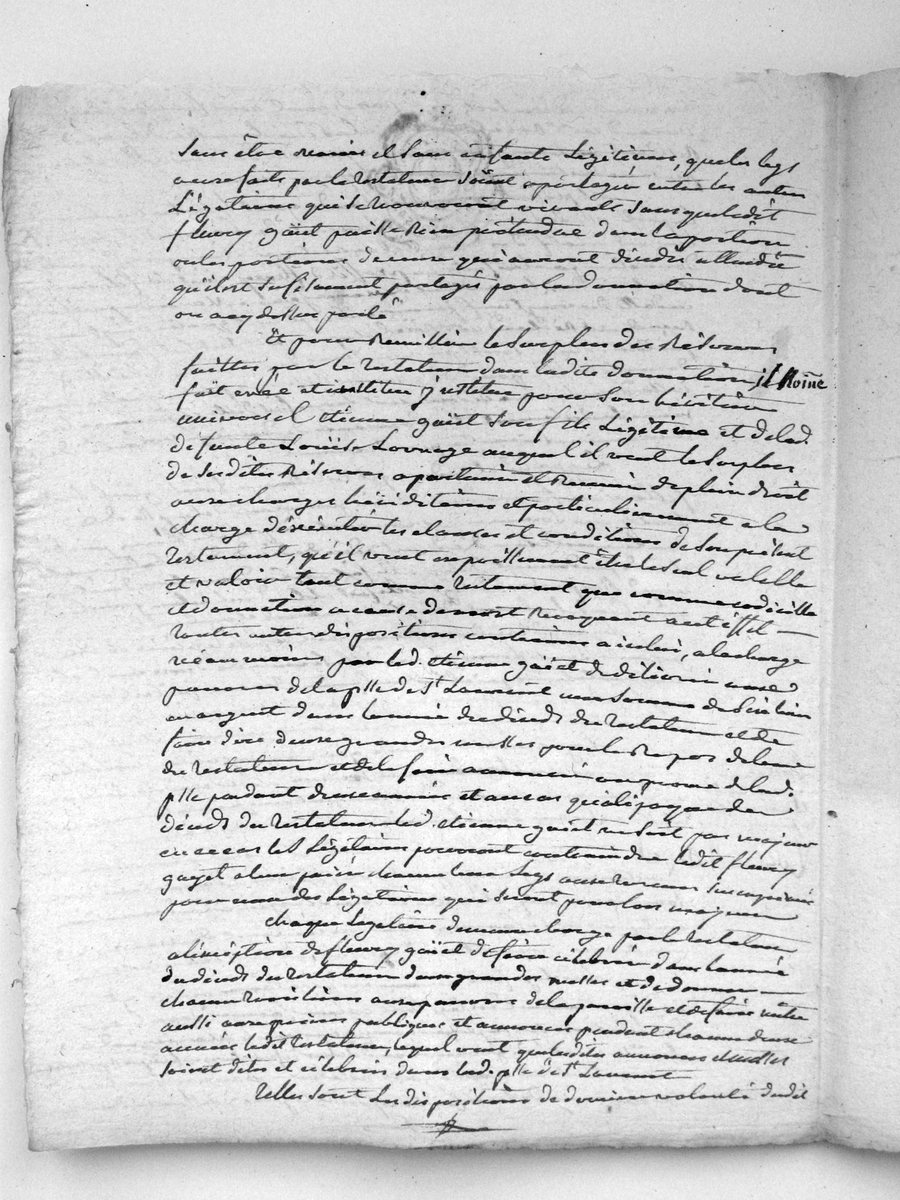 sans être mariés et sans enfants Légitimes, que les legs
a eux faits par le testateur soient partagés entre les autres
Légataires qui se trouveront vivants sans que ledit
fleury gaïet puisse rien prétendre dans la portion
ou les portions de ceux qui auront décédés attendu
qu'il est sufisament partagé par la donnation dont
on a cy dessus parlé
Et pour remettre le surplus des Réserves
faittes par le testateur dans ladite donnation, il Noîme
fait créé et institue pour son héritier
universel etienne gaïet son fils Légitime et de lad.
defunte Louïse Lornage auquel il veut le surplus
de sesdites Réserves apartenir et Revenir de plein droit
aux charges héréditaires et particulièrement a la
charge d'exécuter les clauses et conditions de son présent
testament, qu'il veut expressément être le seul valable
et valoir tant comme testament que comme codicille
et donnation a cause de mort Revoquant a cet effet
toutes autres dispositions contraires a icelui, a la charge
néanmoins par led. etienne gaïet de délivrer aux
pauvres de la plle de St Laurent une somme de six livres
en argent dans l'année du décéds du testateur et de
faire dire deux grandes messes pour le Repos de l'ame
du testateur et de le faire annoncer au prone de lad.
plle pendant deux années et au cas qu'a l'époque du
décéds du testateur led. etienne gaïet ne soit pas majeur
en ce cas les Légataires pourront contraindre ledit fleury
gayet a leur païer chacun leur Legs aux termes susexprimés
pour ceux des Légataires qui seront pour lors majeurs
chaque Légataire demeure chargé par le testateur
a l'éxception de fleury gaïet de faire célébrer dans l'année
du décéds du testateur deux grandes messes et de donner
chacun trois livres aux pauvres de la paroisse et de faire mettre
aussi aux prières publiques et annonces pendant chacun deux
années ledit testateur, lequel veut que lesdites annonces et messes
soient dites et célébrées dans lad. plle de St Laurent
Telles sont Les dispositions de dernière volonté dudit